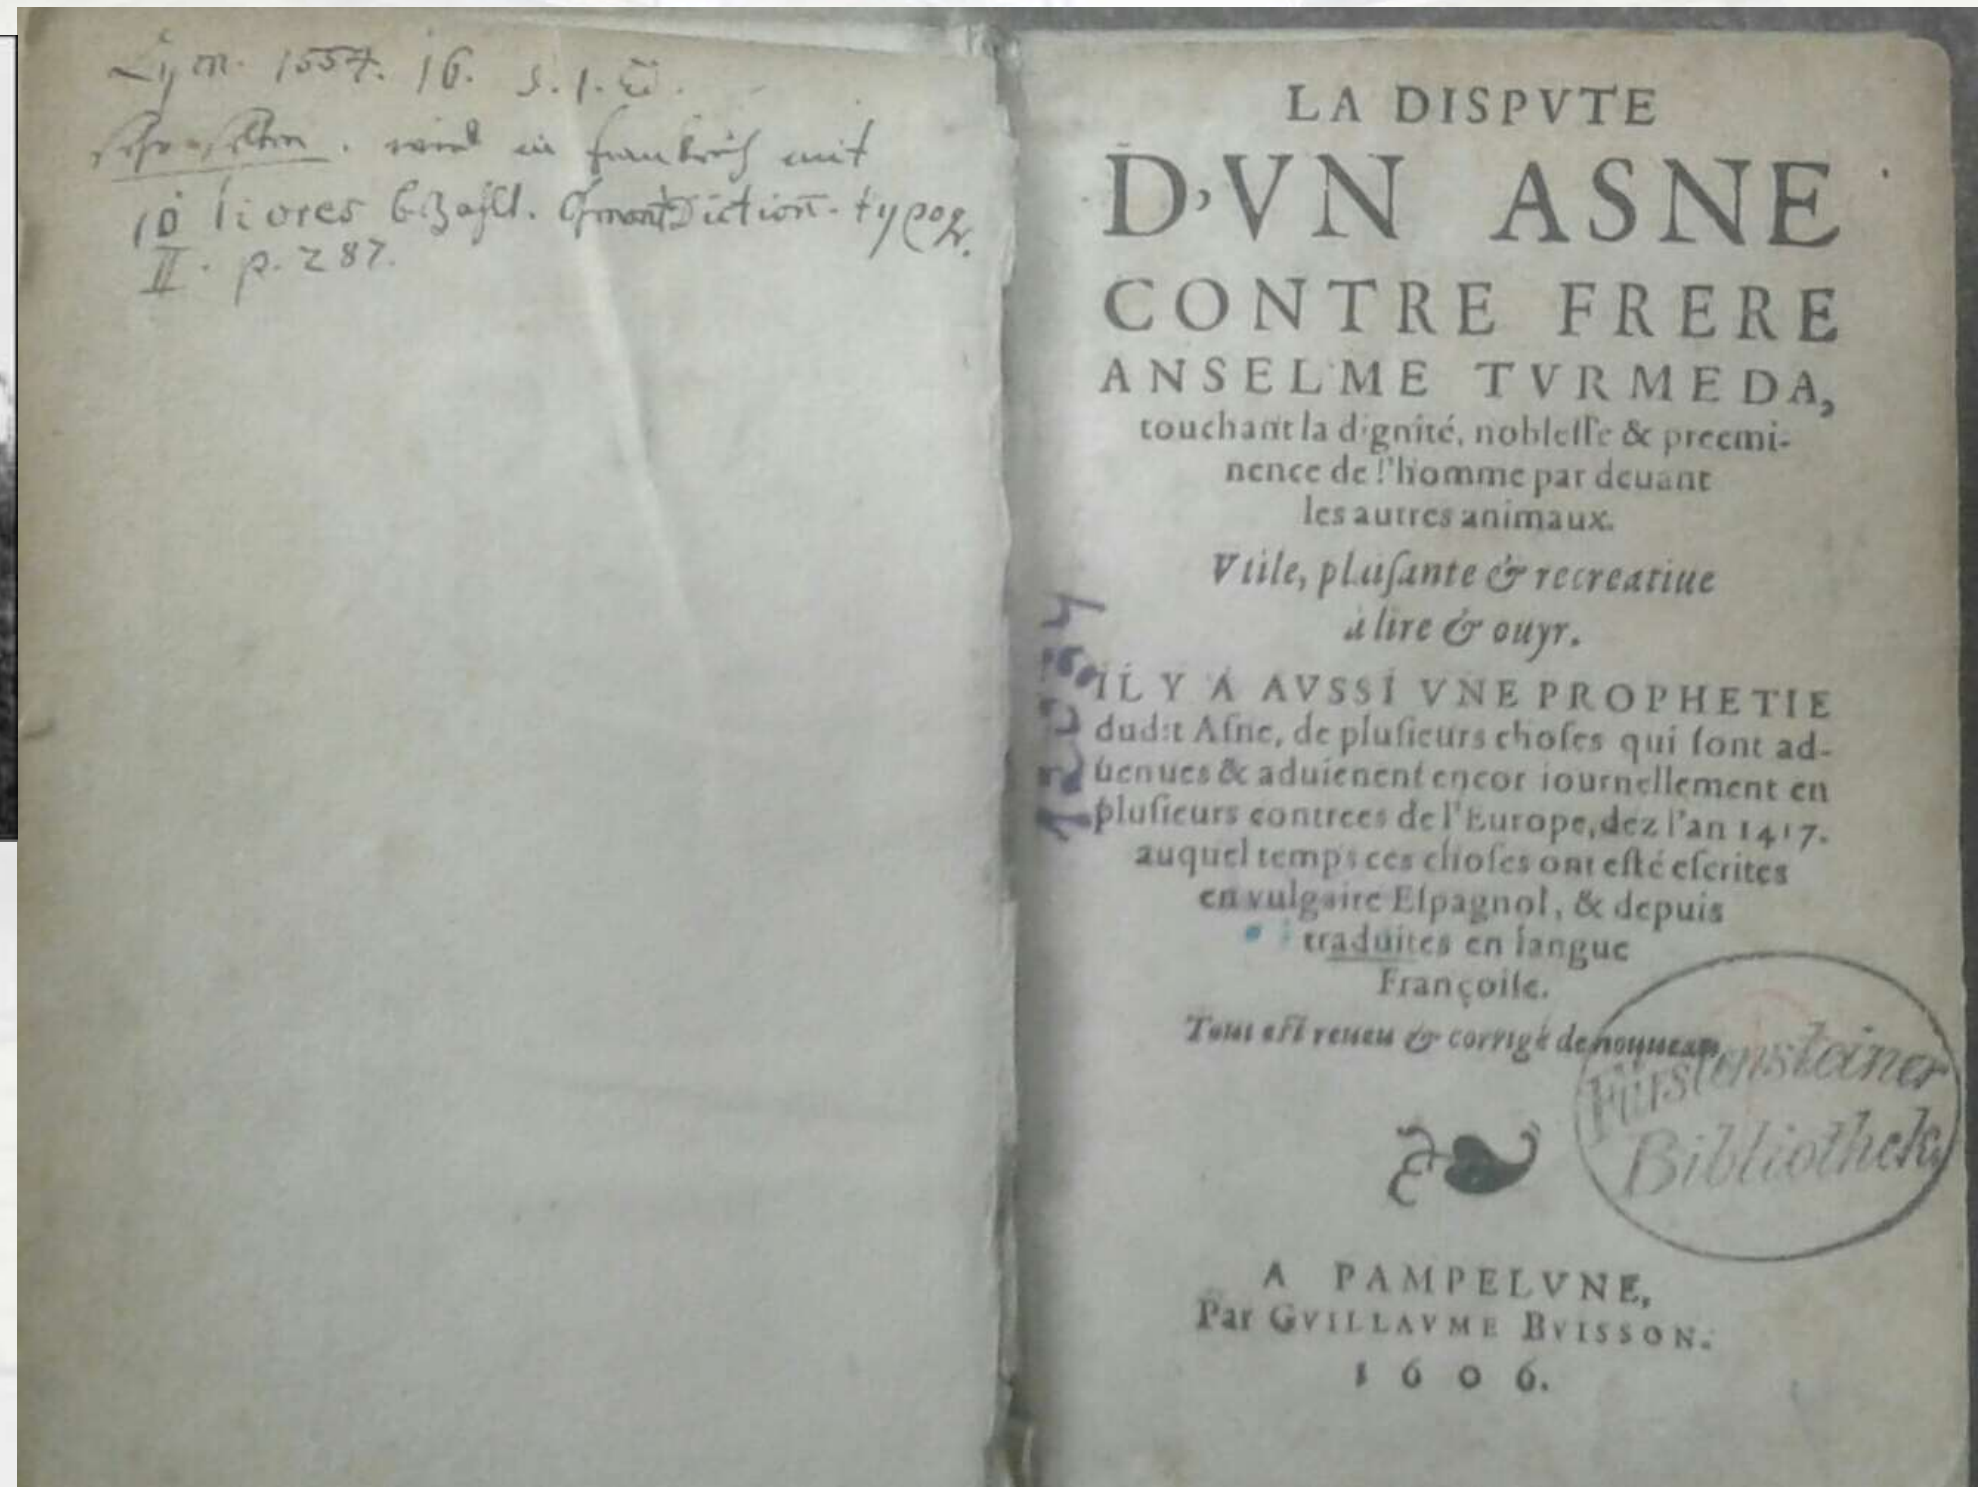 Lym. 1554. 16. s. l.
wird in frankreich mit
10 livres bezahlt. Osmont Diction. typogr.
II. p. 287.
LA DISPVTE
D'VN ASNE
CONTRE FRERE
ANSELME TVRMEDA,
touchant la dignité, noblesse & preemi-
nence de l'homme par deuant
les autres animaux.
Vtile, plaisante & recreatiue
à lire & ouyr.
IL Y A AVSSI VNE PROPHETIE
dudit Asne, de plusieurs choses qui sont ad-
uenues & aduienent encor iournellement en
plusieurs contrees de l'Europe, dez l'an 1417.
auquel temps ces choses ont esté escrites
en vulgaire Espagnol, & depuis
traduites en langue
Françoise.
Tout est reueu & corrigé de nouueau.
Fürstensteiner
Bibliothek.
A PAMPELVNE,
Par GVILLAVME BVISSON.
1606.